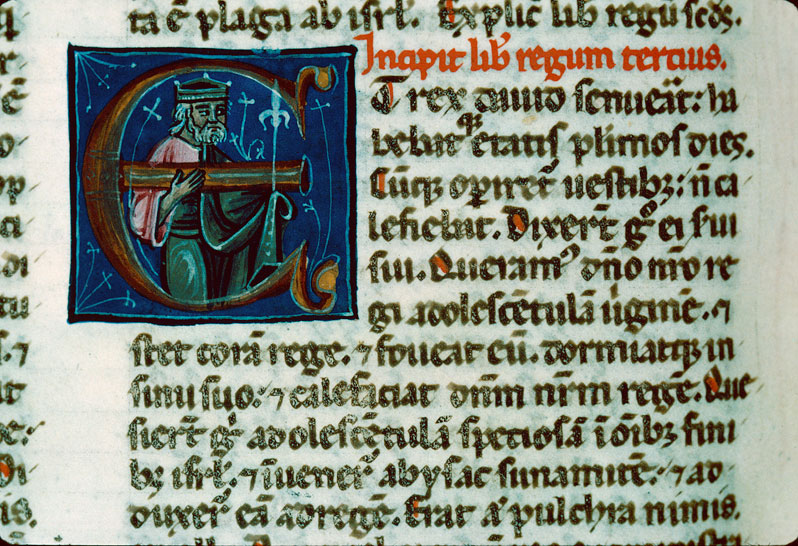 ta ē plaga ab isrl̄. Explic̄ lib regū scd̄s.
Incipit lib̄ regum tercius.
Et rex dauid senuerat: ha
bebat qꝫ etatis pl̄imos dies.
Cūqꝫ oꝑiret᷑ uestibꝫ: n̄ ca
lefiebat. Dixer̄t gͦ ei sui
sui. Queramꝰ dn̄o nr̄o re
gi adolescētulā uirginē. ⁊
stet corā rege. ⁊ foueat eū. dormiatqꝫ in
sinu suo. ⁊ calefaciat dn̄m nr̄m regē. Que
sier̄t gͦ adolescētulā speciosā ī oībꝫ fini
bꝫ isrl̄. ⁊ īuener̄ abysac sunamitē. ⁊ ad
duxer̄ eā ad regē. Erat aū pulchra nimis.